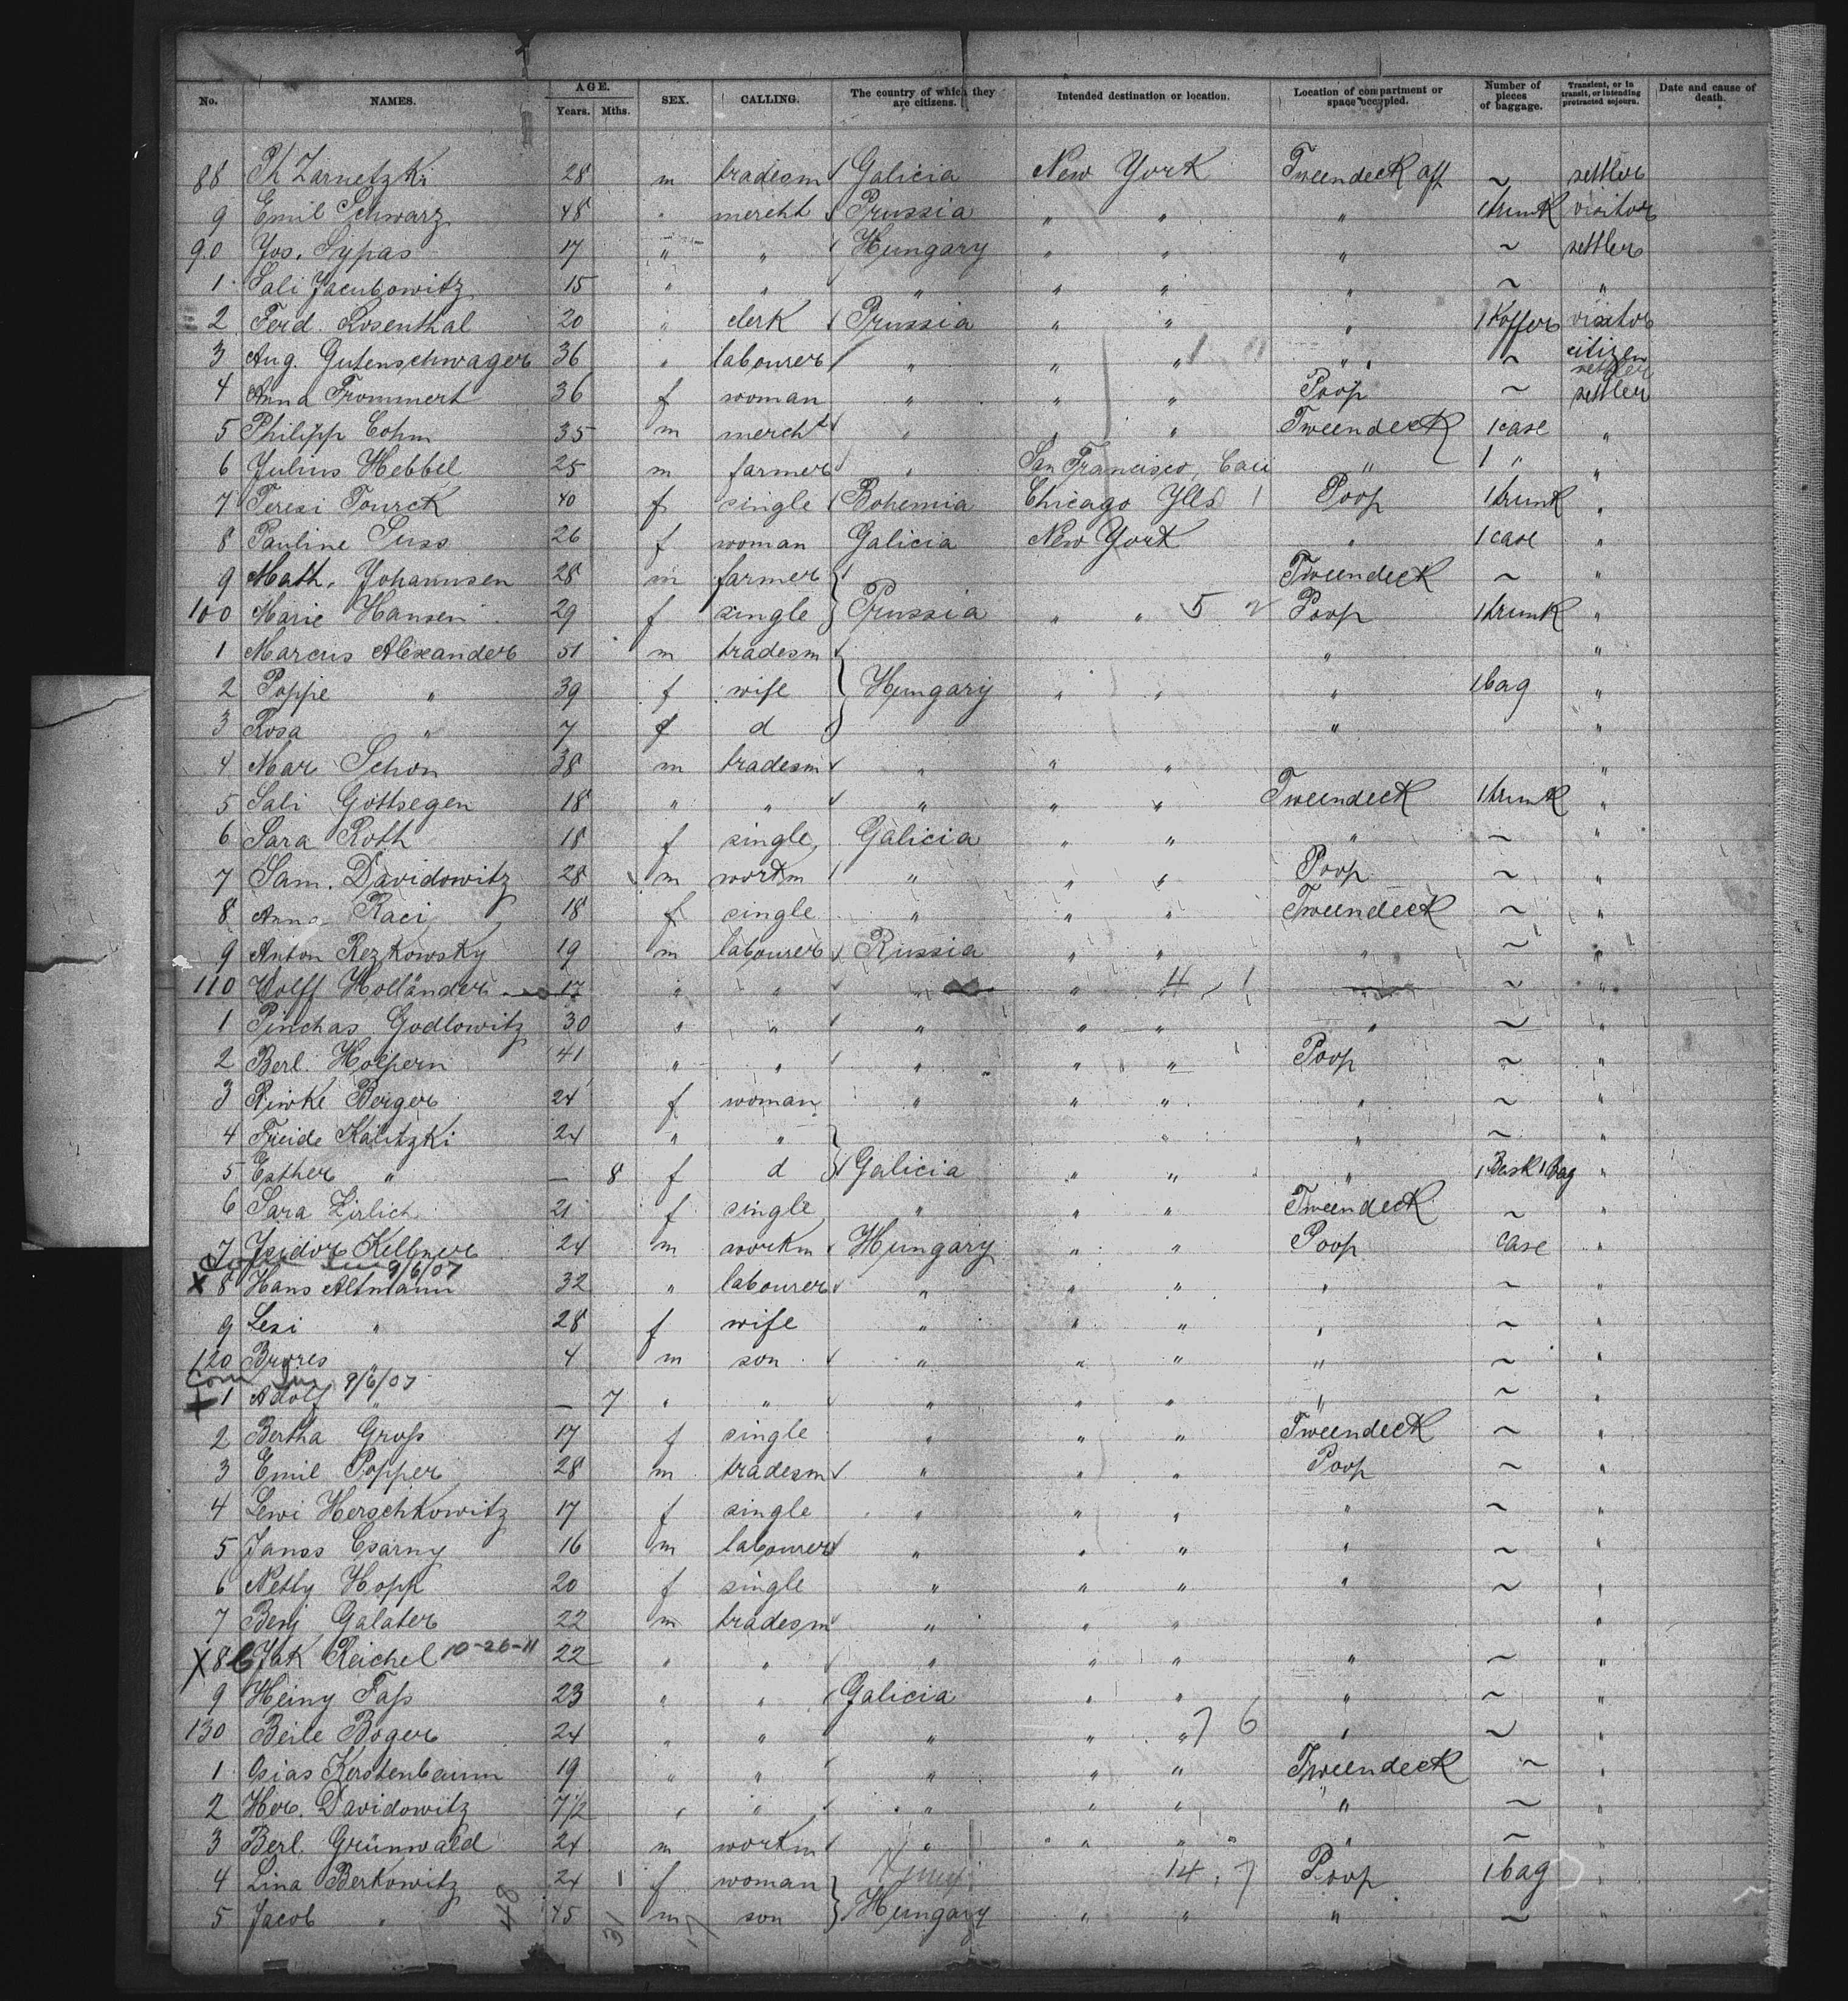 No. NAMES. AGE. Years. Mths. SEX. CALLING. The country of which they are citizens. Intended destination or location. Location of compartment or space occupied. Number of pieces of baggage. Transient, or in transit, or intending protracted sojourn. Date and cause of death.
88 Ph Zarnetzki 28 m tradesm Galicia New York Tweendeck aft ~ settler
9 Emil Schwarz 48 " mercht Prussia " " " 1 trunk visitor
90 Jos. Sypas 17 " " Hungary " " " ~ settler
1 Sali Jacubowitz 15 " " " " " " ~ "
2 Ferd. Rosenthal 20 " clerk Prussia " " " 1 Koffer visitor
3 Aug. Gutenschwager 36 " labourer " " " " ~ citizen settler
4 Anna Frommert 36 f woman " " " Poop ~ settler
5 Philipp Cohm 35 m mercht " " " Tweendeck 1 case "
6 Julius Hebbel 25 m farmer " San Francisco, Cali " 1 " "
7 Teresi Tourck 40 f single Bohemia Chicago Ylls 1 Poop 1 trunk "
8 Pauline Suss 26 f woman Galicia New York " 1 case "
9 Math. Johannsen 28 m farmer Tweendeck ~ "
100 Marie Hansen 29 f single Prussia " " 5 2 Poop 1 trunk "
1 Marcus Alexander 51 m tradesm " "
2 Poppe " 39 f wife Hungary " " " 1 bag "
3 Rosa " 7 f d " "
4 Mar Schon 38 m tradesm " " " "
5 Sali Gottsegen 18 " " " " " Tweendeck 1 trunk "
6 Sara Roth 18 f single Galicia " " " ~ "
7 Sam. Davidowitz 28 m workm " " " Poop ~ "
8 Anna Raci 18 f single " " " Tweendeck ~ "
9 Anton Rezkowsky 19 m labourer Russia " " " ~ "
110 Wolff Holländer 17 " " " " " 4 1 ~ "
1 Pinchas Godlowitz 30 " " " " " " ~ "
2 Berl. Holpern 41 " " " " " Poop ~ "
3 Riwke Berger 24 f woman " " " " ~ "
4 Freide Kalitzki 24 " " " " ~ "
5 Esther " — 8 f d Galicia " " " 1 Bask 1 bag "
6 Sara Zirlich 21 f single " " " Tweendeck ~ "
7 Isidor Kellner 24 m workm Hungary " " Poop case "
9/6/07
X 8 Hans Altmann 32 " labourer " " " " ~ "
9 Lesi " 28 f wife " " " " ~ "
120 Brores " 4 m son " " " " ~ "
9/6/07
X 1 Adolf " — 7 " " " " " " ~ "
2 Bertha Groß 17 f single " " " Tweendeck ~ "
3 Emil Popper 28 m tradesm " " " Poop ~ "
4 Lewi Herschkowitz 17 f single " " " " ~ "
5 Janos Csarny 16 m labourer " " " " ~ "
6 Netty Hopp 20 f single " " " " ~ "
7 Benj Galater 22 m tradesm " " " "
X 8 C Jak Reichel 10-26-11 22 " " " " " " ~ "
9 Heiny Faß 23 " " Galicia " " " ~ "
130 Beile Boger 24 " " " " " 7 6 " ~ "
1 Osias Kerstenbaum 19 " " " " " Tweendeck ~ "
2 Her. Davidowitz 7 1/2 " " " " " " ~ "
3 Berl. Grünwald 24 m workm " " " " ~ "
4 Lina Berkowitz 24 1 f woman 14 7 Poop 1 bag "
5 Jacob " 45 m son Hungary " " " ~ "
48 31 17